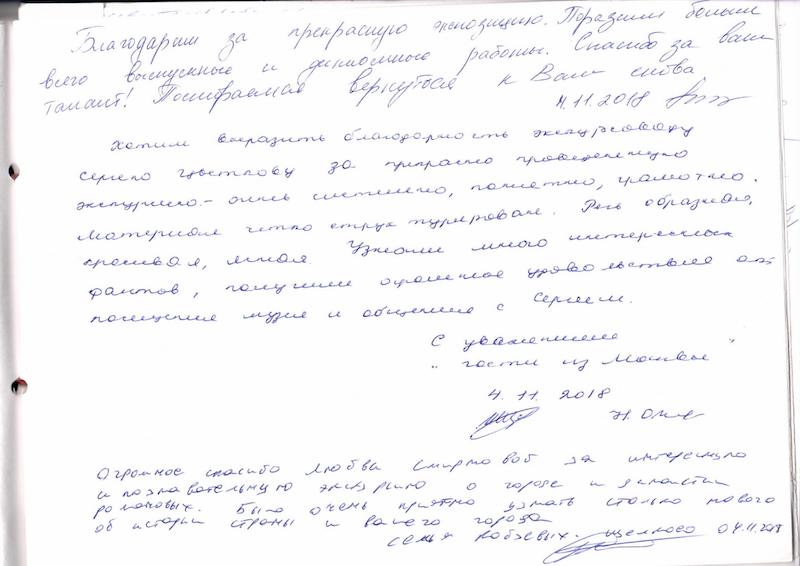 Благодарим за прекрасную экспозицию. Поразили больше
всего выпускные и дипломные работы. Спасибо за ваш
талант! Постараемся вернуться к Вам снова
4.11.2018
Хотим выразить благодарность экскурсоводу
Сергею Цветкову за прекрасно проведенную
экскурсию - очень системно, понятно, грамотно.
Материал четко структурирован. Речь образная,
красивая, живая. Узнали много интересных
фактов, получили огромное удовольствие от
посещения музея и общения с Сергеем.
С уважением
"гости из Москвы"
4.11.2018
Огромное спасибо Любовь Смирновой за интересную
и познавательную экскурсию о городе и династии
романовых. Было очень приятно узнать столько нового
об истории страны и вашего города
семья Щелково 04.11.2018